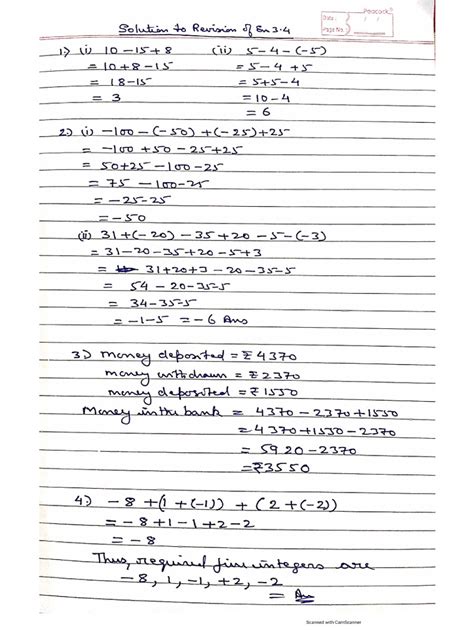 Peacock
Date: / /
Page No.:
Solution to Revision of Ex 3.4
1) (i) 10-15+8 (ii) 5-4-(-5)
= 10+8-15 = 5-4+5
= 18-15 = 5+5-4
= 3 = 10-4
= 6
2) (i) -100-(-50)+(-25)+25
= -100+50-25+25
= 50+25-100-25
= 75-100-25
= -25-25
= -50
(ii) 31+(-20)-35+20-5-(-3)
= 31-20-35+20-5+3
= 31+20+3-20-35-5
= 54-20-35-5
= 34-35-5
= -1-5 = -6 Ans
3) Money deposited = ₹4370
money withdrawn = ₹2370
money deposited = ₹1550
Money in the bank = 4370-2370+1550
= 4370+1550-2370
= 5920-2370
= ₹3550
4) -8+(1+(-1))+(2+(-2))
= -8+1-1+2-2
= -8
Thus, required five integers are
-8, 1, -1, +2, -2
= Ans
Scanned with CamScanner